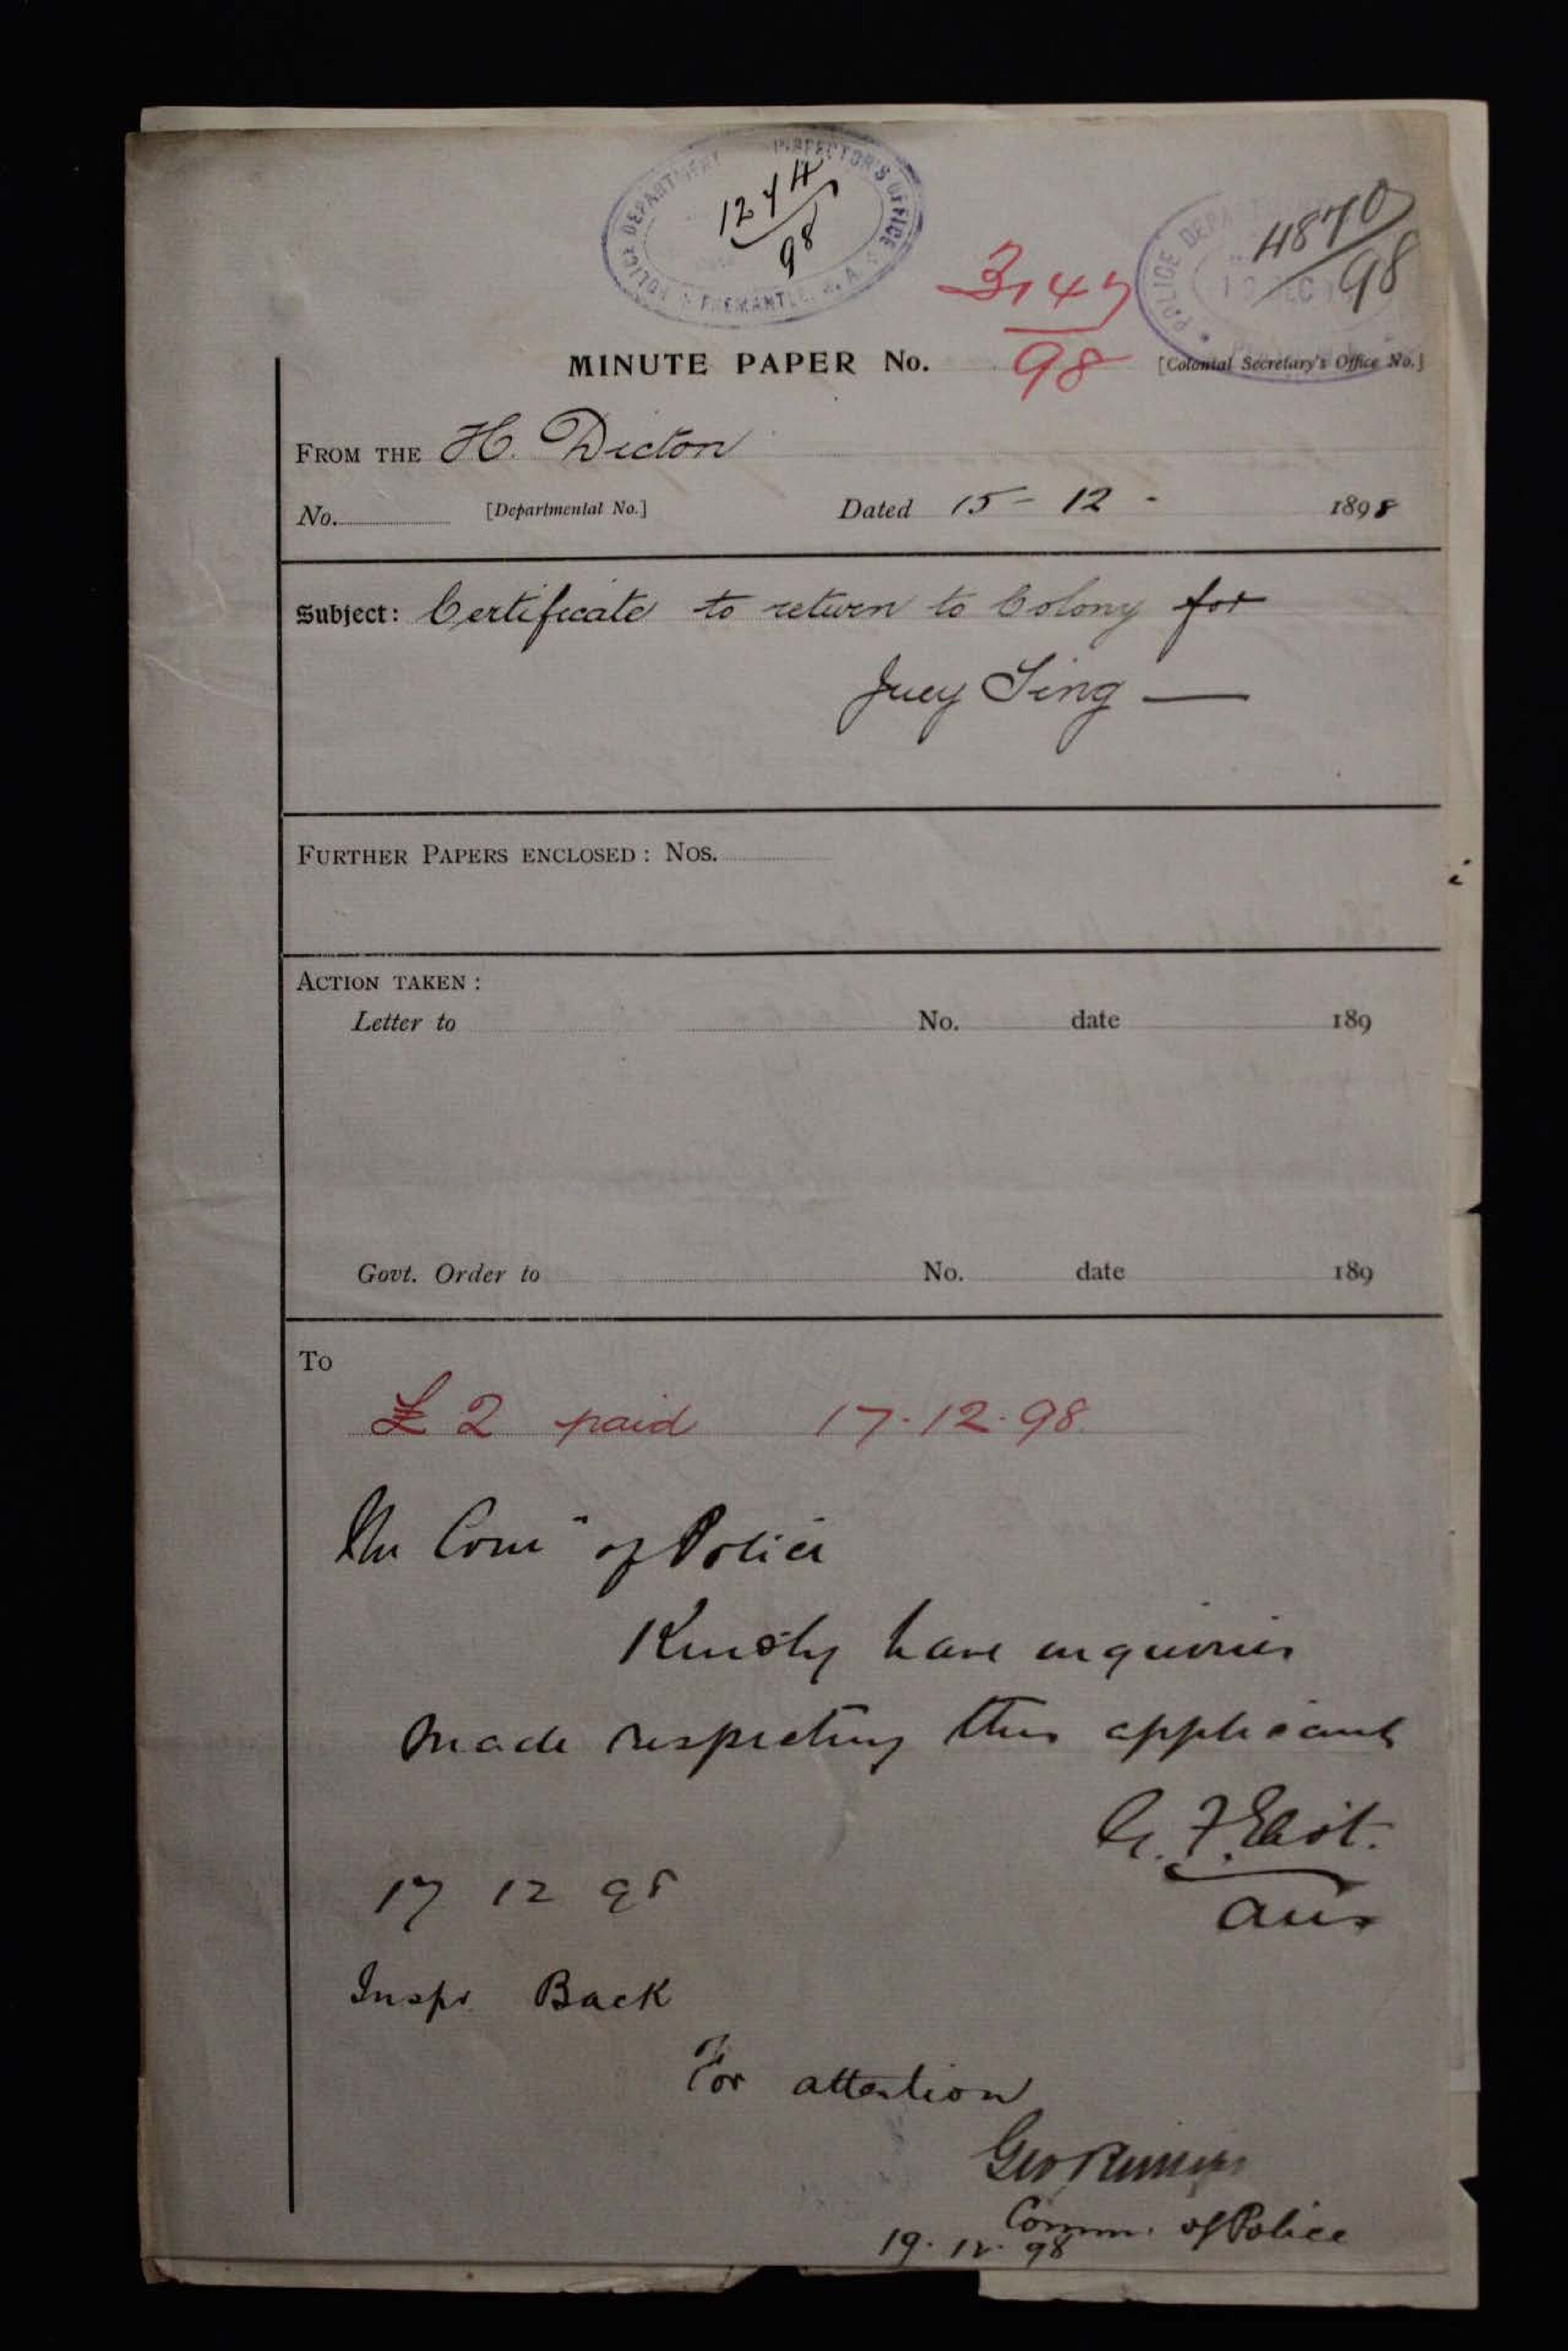 POLICE DEPARTMENT INSPECTOR'S OFFICE
FREMANTLE, W.A.
1274
98
POLICE DEPA
4870
98
DEC
3147
98
MINUTE PAPER No. [Colonial Secretary's Office No.]
FROM THE H. Dicton
No. [Departmental No.] Dated 15 - 12 - 1898
Subject: Certificate to return to Colony for
Juey Sing —
FURTHER PAPERS ENCLOSED: Nos.
ACTION TAKEN:
Letter to No. date 189
Govt. Order to No. date 189
To
£2 paid 17.12.98.
The Comr of Police
Kindly have inquiries
made respecting this applicant
G. F. Eliot.
17 12 98
Inspr Back
For attention
Geo Phillips
Comm. of Police
19.12.98